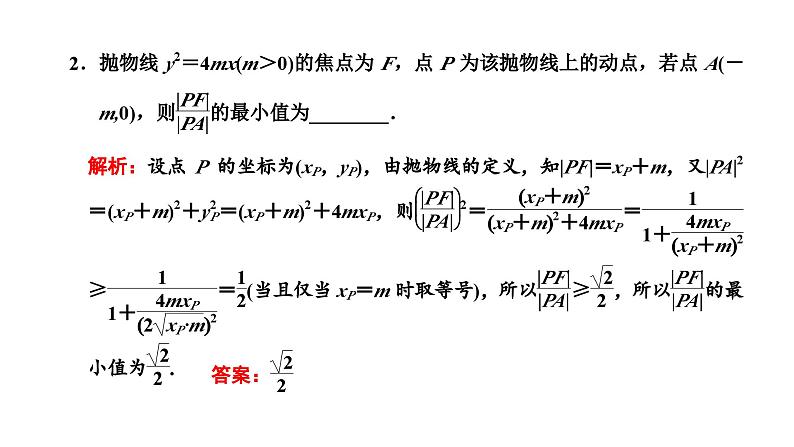 2．抛物线 y²＝4mx(m＞0)的焦点为 F，点 P 为该抛物线上的动点，若点 A(－
m,0)，则|PF|/|PA|的最小值为________．
解析：设点 P 的坐标为(xP，yP)，由抛物线的定义，知|PF|＝xP＋m，又|PA|²
＝(xP＋m)²＋yP²＝(xP＋m)²＋4mxP，则(|PF|/|PA|)²＝(xP＋m)²/((xP＋m)²＋4mxP)＝1/(1＋4mxP/(xP＋m)²)
≥1/(1＋4mxP/(2√(xP·m))²)＝1/2(当且仅当 xP＝m 时取等号)，所以|PF|/|PA|≥√2/2，所以|PF|/|PA|的最
小值为√2/2．
答案：√2/2